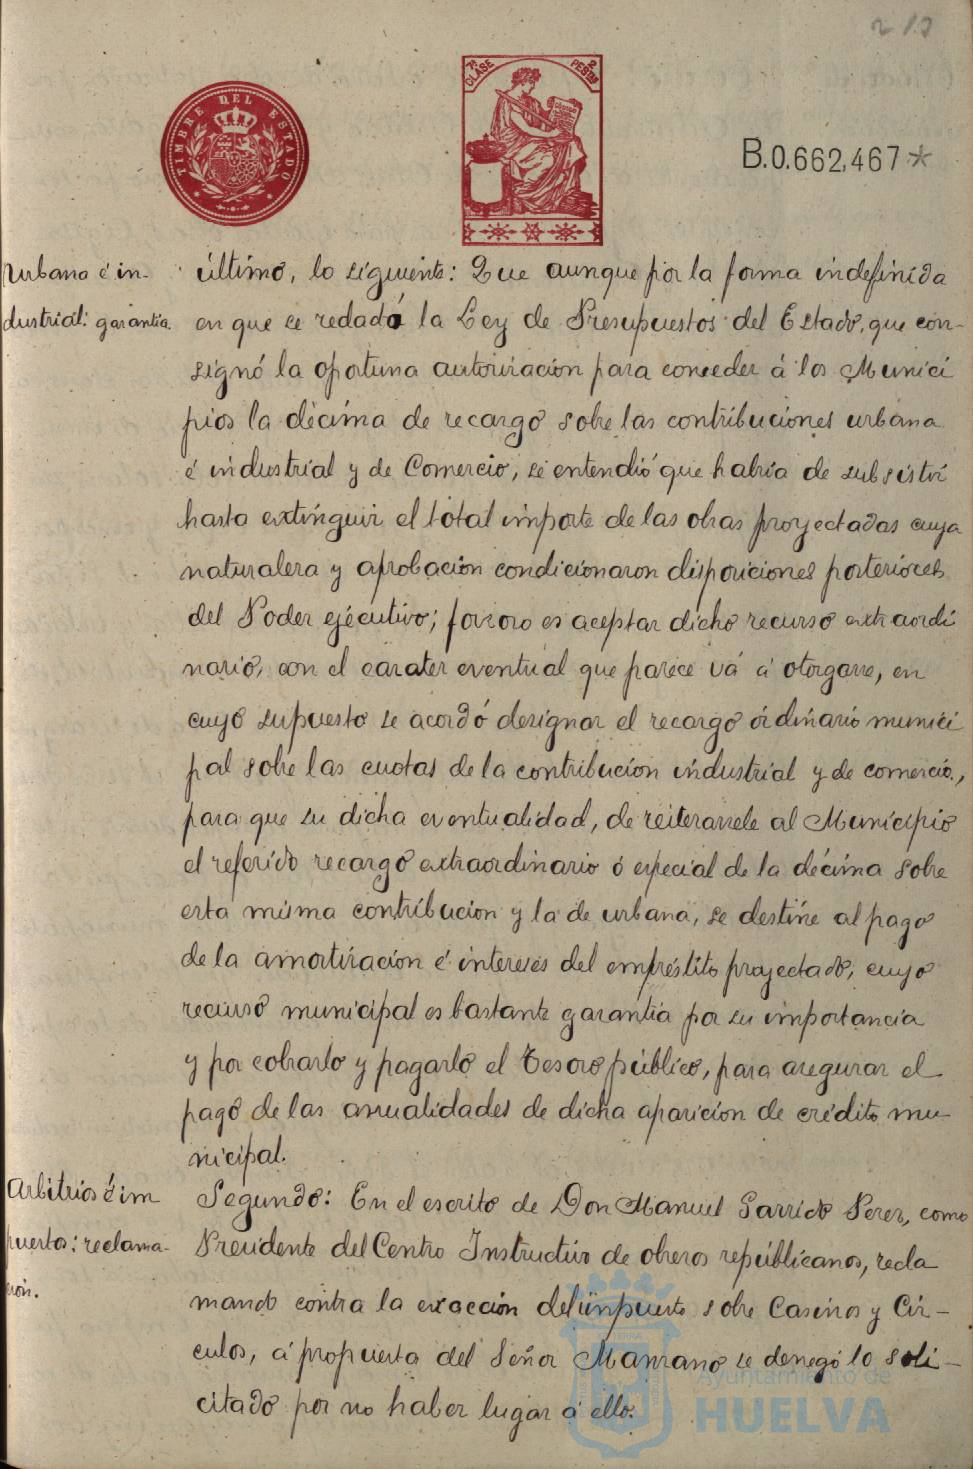 213
TIMBRE DEL ESTADO
7ª CLASE 2 PESTAS
B.0.662,467*
Urbana é in-
dustrial: garantía.
último, lo siguiente: Que aunque por la forma indefinida
en que se redactó la Ley de Presupuestos del Estado, que con-
signó la oportuna autorización para conceder á los Munici
pios la décima de recargo sobre las contribuciones urbana
é industrial y de Comercio, se entendió que habría de subsistir
hasta extinguir el total importe de las obras proyectadas cuya
naturaleza y aprobación condicionaron disposiciones posteriores
del Poder ejécutivo; forzoro es aceptar dicho recurso extraordi
nario, con el carater eventual que parece vá á otorgarse, en
cuyo supuesto se acordó designar el recargo órdinario munici
pal sobre las cuotas de la contribución industrial y de comercio,
para que su dicha eventualidad, de reiterarsele al Municipio
el referido recargo extraordinario ó especial de la décima sobre
esta misma contribución y la de urbana, se destine al pago
de la amortización é intereses del empréstito proyectado, cuyo
recurso municipal es bastante garantía por su importancia
y por cobrarlo y pagarlo el Tesoro público, para asegurar el
pago de las anualidades de dicha aparición de crédito mu-
nicipal.
Arbitrios é im
puestos: reclama-
ción.
Segundo: En el escrito de Don Manuel Garrido Perez, como
Presidente del Centro Instructivo de obreros republicanos, recla
mando contra la exacción del impuesto sobre Casinos y Cír-
culos, á propuesta del Señor Manzano se denegó lo soli-
citado por no haber lugar á ello.
Ayuntamiento de
HUELVA